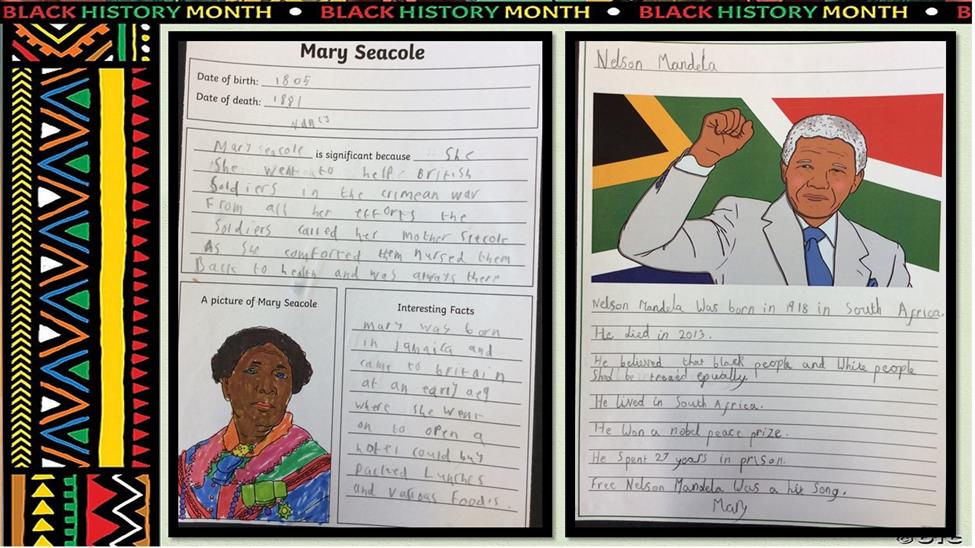 BLACK HISTORY MONTH • BLACK HISTORY MONTH • BLACK HISTORY MONTH • B
Mary Seacole
Date of birth: 1805
Date of death: 1881
Mary seacole is significant because She
She went to help British
Soldiers in the crimean war
From all her efforts the
Soldiers called her mother Seacole
As She comforted them nursed them
Back to health and was always there
A picture of Mary Seacole
Interesting Facts
Mary was born
in jamaica and
came to britain
at an early aeg
where she went
on to open a
hotel could buy
packed Lunches
and various Foodis.
Nelson Mandela
Nelson Mandela Was born in 1918 in South Africa.
He died in 2013.
He belived that black people and White people
be treaed equally.
He lived in South Africa.
He Won a nobel peace prize.
He Spent 27 years in prison.
Free Nelson Mandela Was a hit Song.
Mary